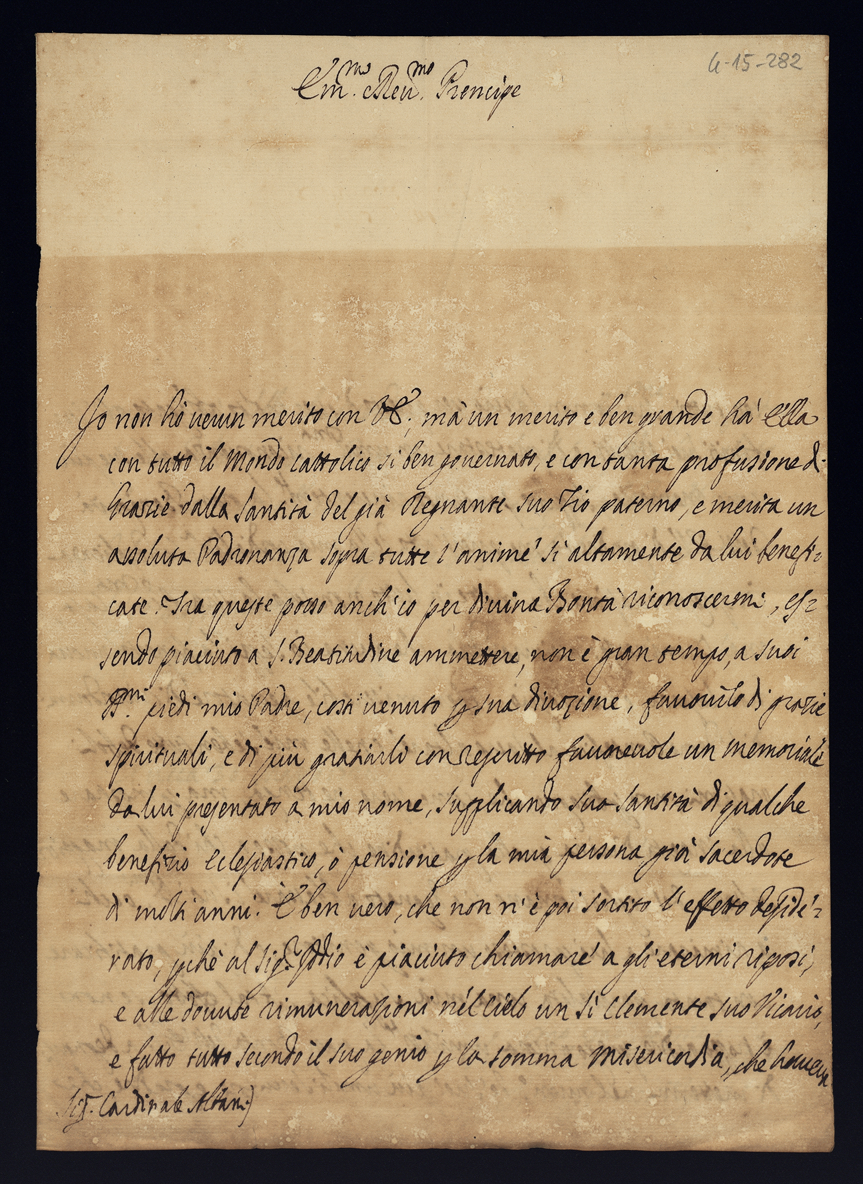 4-15-282
Em.mo Reu.mo Prencipe
Io non hò uerun merito con VE; mà un merito e ben grande hà Ella
con tutto il Mondo cattolico si ben gouernato, e con tanta profusione di
Grazie dalla Santità del già Regnante suo Zio paterno, e merita un
assoluta Padronanza sopra tutte l'anime sì altamente da lui benefi:
cate. Trà queste posso anch'io per diuina Bontà riconoscermi, es:
sendo piaciuto a S. Beatitudine ammettere, non è gran tempo, a suoi
piedi mio Padre, costi uenuto p sua diuozione, fauorirlo di grazie
spirituali, e di più graziarli con rescritto fauoreuole un memoriale
da lui presentato a mio nome, supplicando sua Santità di qualche
benefizio Eclesiastico, ò pensione p la mia persona già sacerdote
di molti anni. È ben uero, che non n'è poi sortito l'effetto deside:
rato, pchè al Sig.r Iddio è piaciuto chiamare a gli eterni riposi,
e alle douute rimunerazioni nel cielo un sì Clemente suo Vicario,
e fatto tutto secondo il suo genio p la somma misericordia, che haueua
Sig. Cardinale Albani)